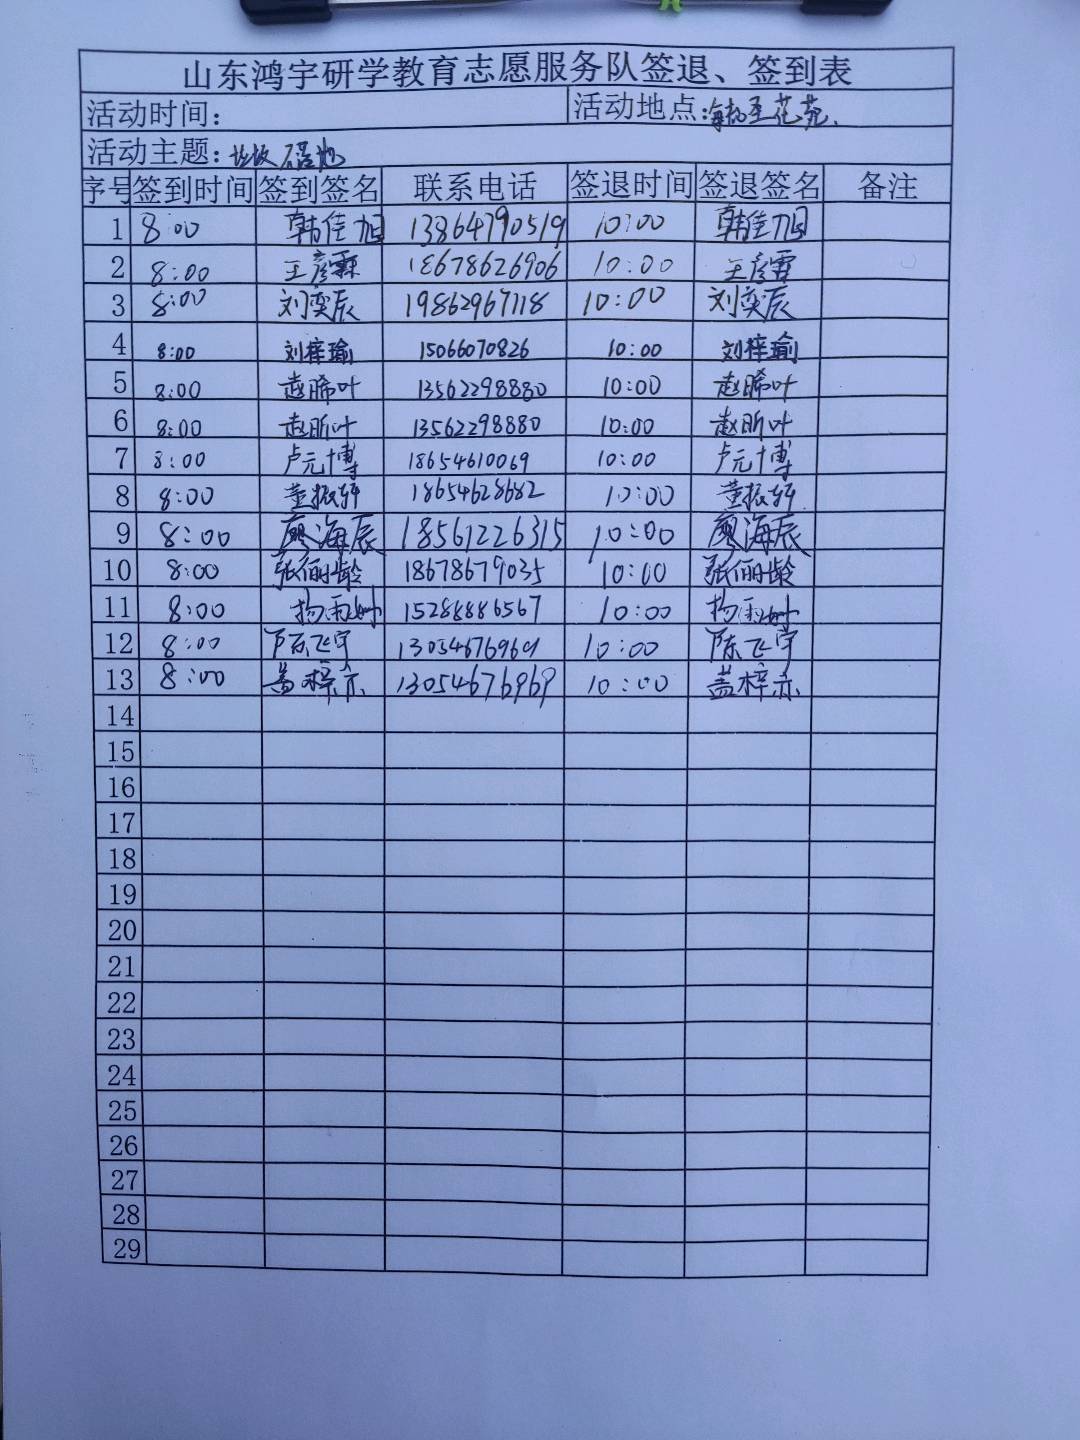 山东鸿宇研学教育志愿服务队签退、签到表
活动时间: 活动地点: 花苑
活动主题: 垃圾不落地
序号 签到时间 签到签名 联系电话 签退时间 签退签名 备注
1 8:00 韩佳旭 13864790519 10:00 韩佳旭
2 8:00 王彦霖 18678626906 10:00 王彦霖
3 8:00 刘奕辰 19862967118 10:00 刘奕辰
4 8:00 刘梓瑜 15066070826 10:00 刘梓瑜
5 8:00 赵晞叶 13562298880 10:00 赵晞叶
6 8:00 赵昕叶 13562298880 10:00 赵昕叶
7 8:00 卢元博 18654610069 10:00 卢元博
8 8:00 董振轩 18654628682 10:00 董振轩
9 8:00 廖海辰 18561226315 10:00 廖海辰
10 8:00 张俪龄 18678679035 10:00 张俪龄
11 8:00 杨雨 15288886567 10:00 杨雨
12 8:00 陈飞宇 13054676969 10:00 陈飞宇
13 8:00 盖梓亦 13054676969 10:00 盖梓亦
14
15
16
17
18
19
20
21
22
23
24
25
26
27
28
29